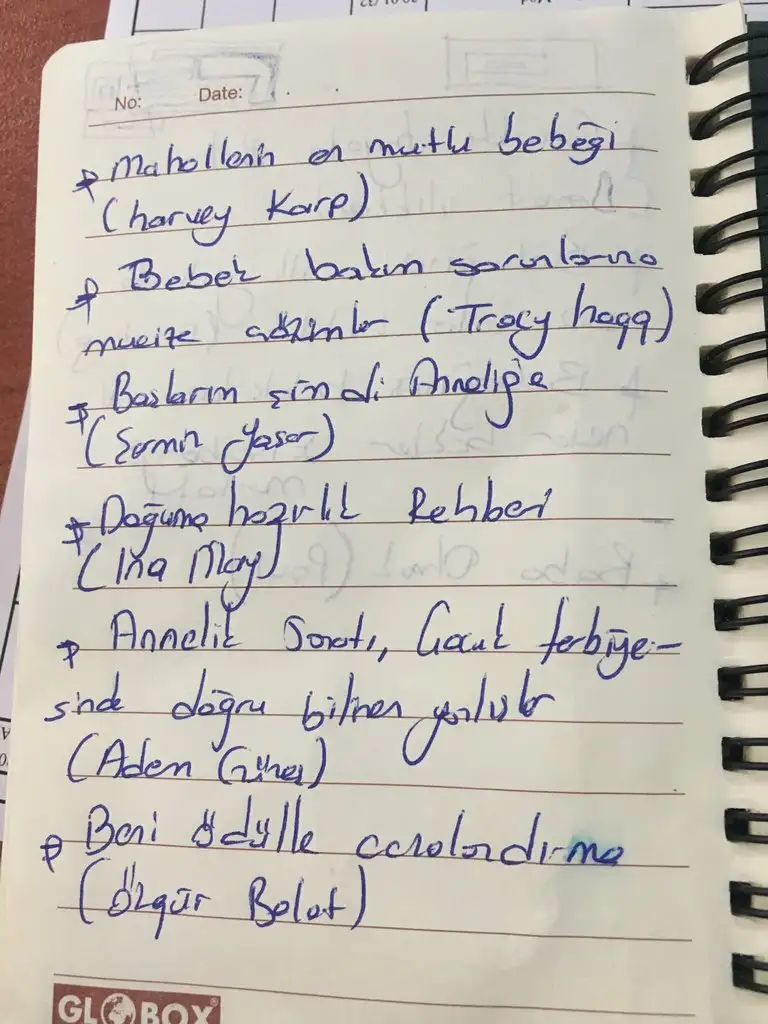 No: Date:
* Mahallenin en mutlu bebeği
(harvey Karp)
* Bebek bakım sorunlarına
mucize çözümler (Tracy hogg)
* Başlarım şimdi Anneliğe
(Şermin Yaşar)
* Doğuma hazırlık Rehberi
(Ina May)
* Annelik Sanatı, Çocuk terbiye-
sinde doğru bilinen yanlışlar
(Adem Güneş)
* Beni ödülle cezalandırma
(Özgür Bolat)
GLOBOX